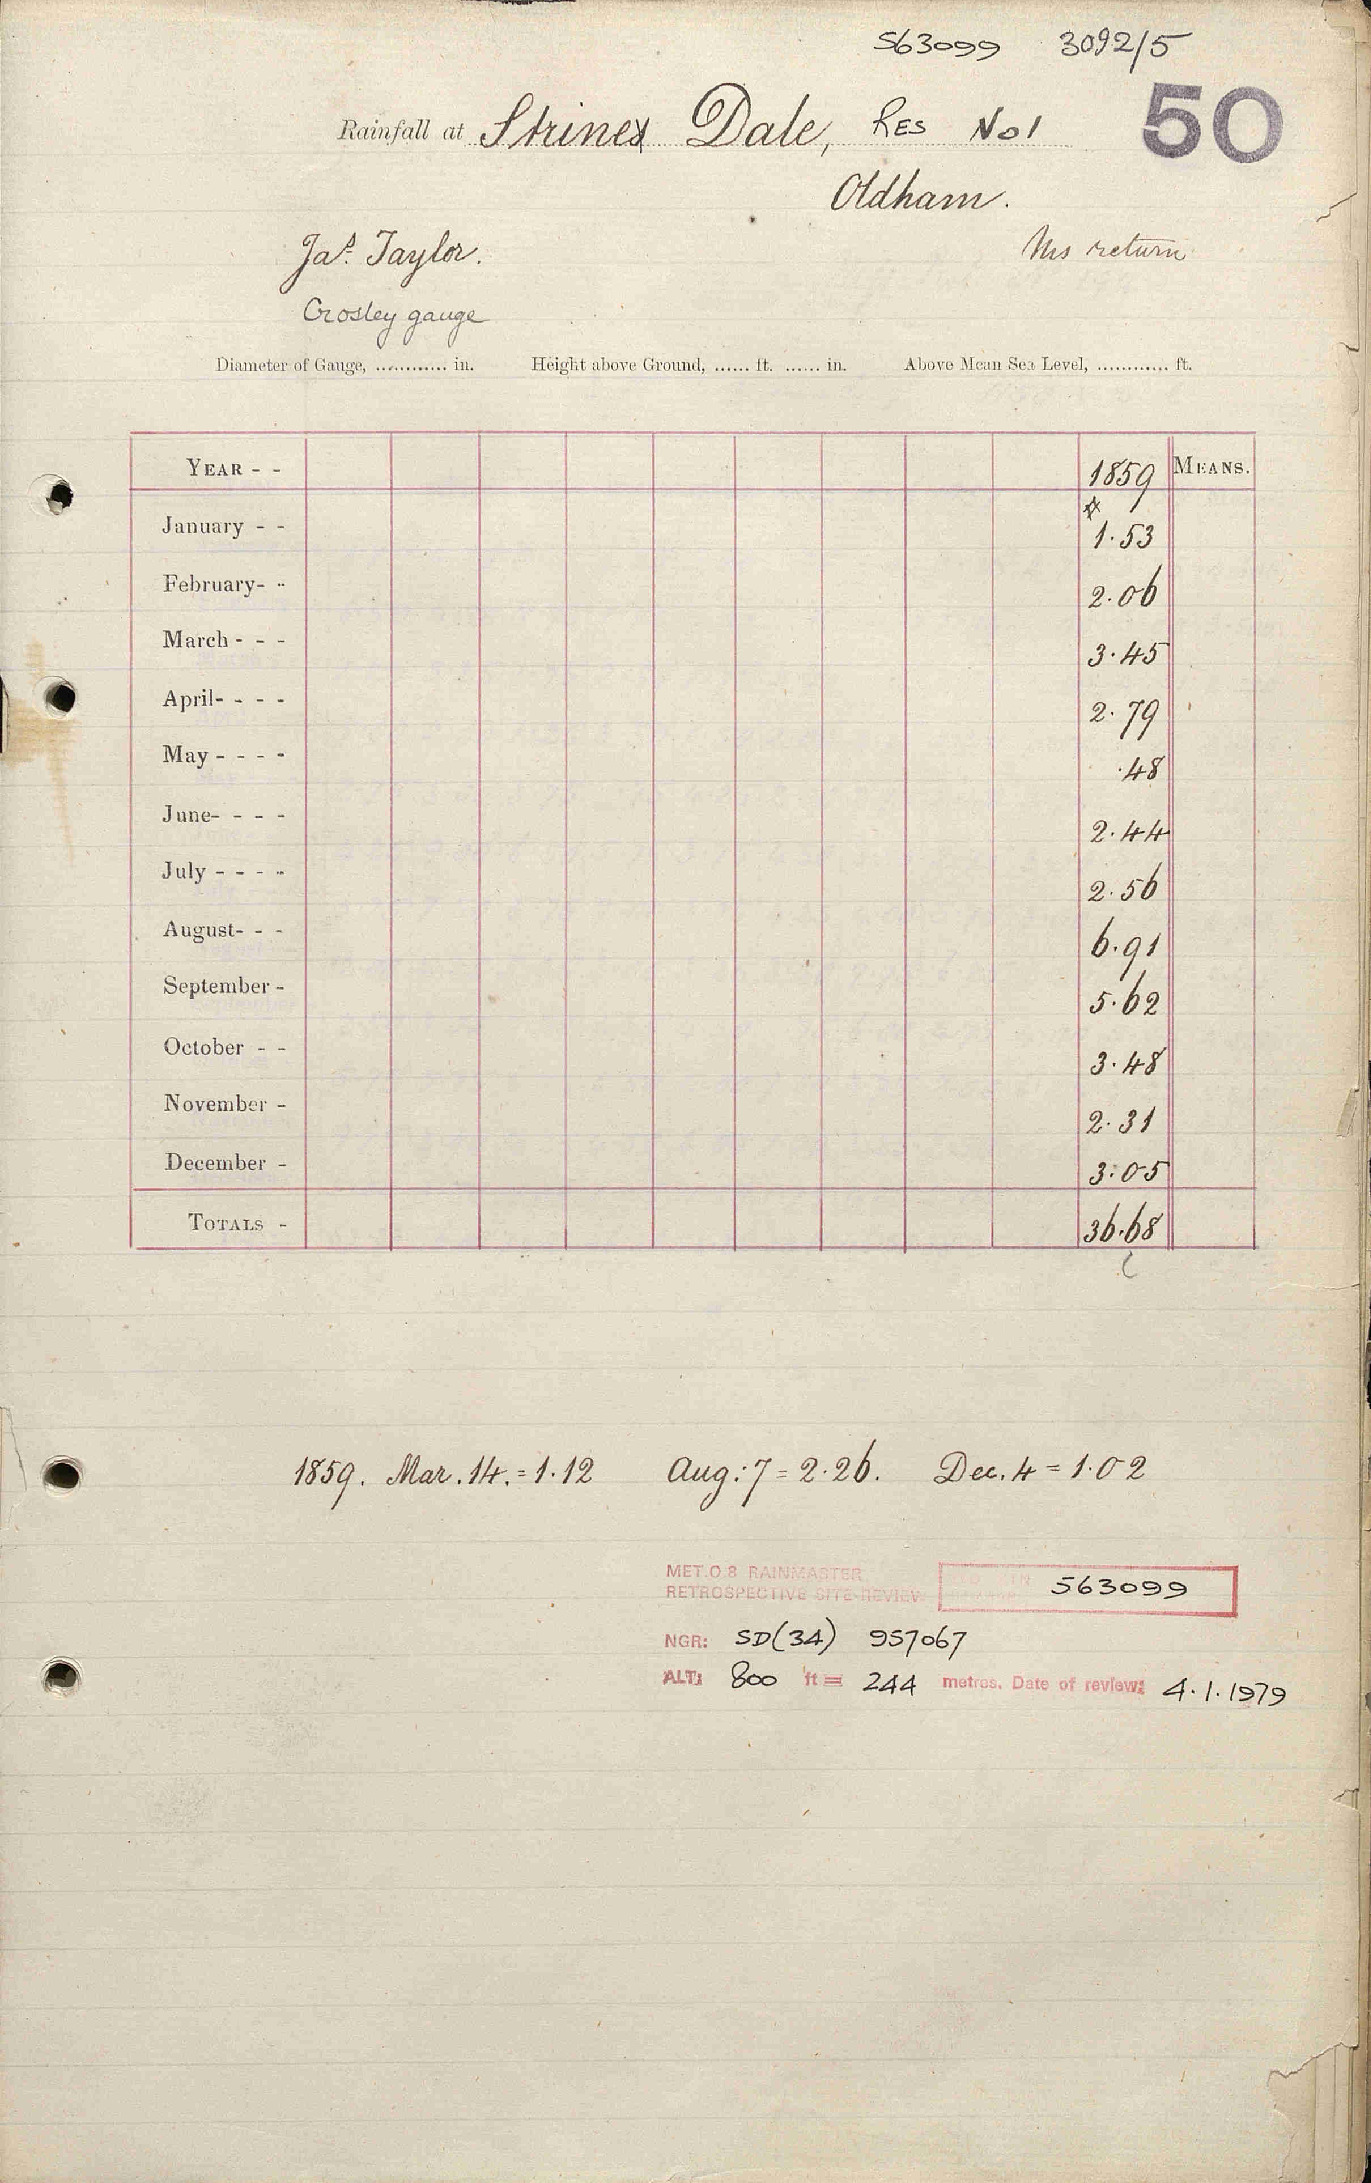 563099 3092/5
50
Rainfall at Strines Dale, RES No 1
Oldham.
Jas. Taylor.
Ms return
Crosley gauge
Diameter of Gauge, ............ in. Height above Ground, ...... ft. ...... in. Above Mean Sea Level, ............ ft.
YEAR - - 1859 MEANS.
January - - 1.53
February- - 2.06
March - - - 3.45
April- - - - 2.79
May - - - - .48
June- - - - 2.44
July - - - - 2.56
August- - - 6.91
September - 5.62
October - - 3.48
November - 2.31
December - 3.05
TOTALS - 36.68
1859. Mar. 14. = 1.12 Aug: 7 = 2.26. Dec. 4 = 1.02
MET.O.8 RAINMASTER
RETROSPECTIVE SITE REVIEW 563099
NGR: SD(34) 957067
ALT: 800 ft = 244 metres. Date of review: 4.1.1979